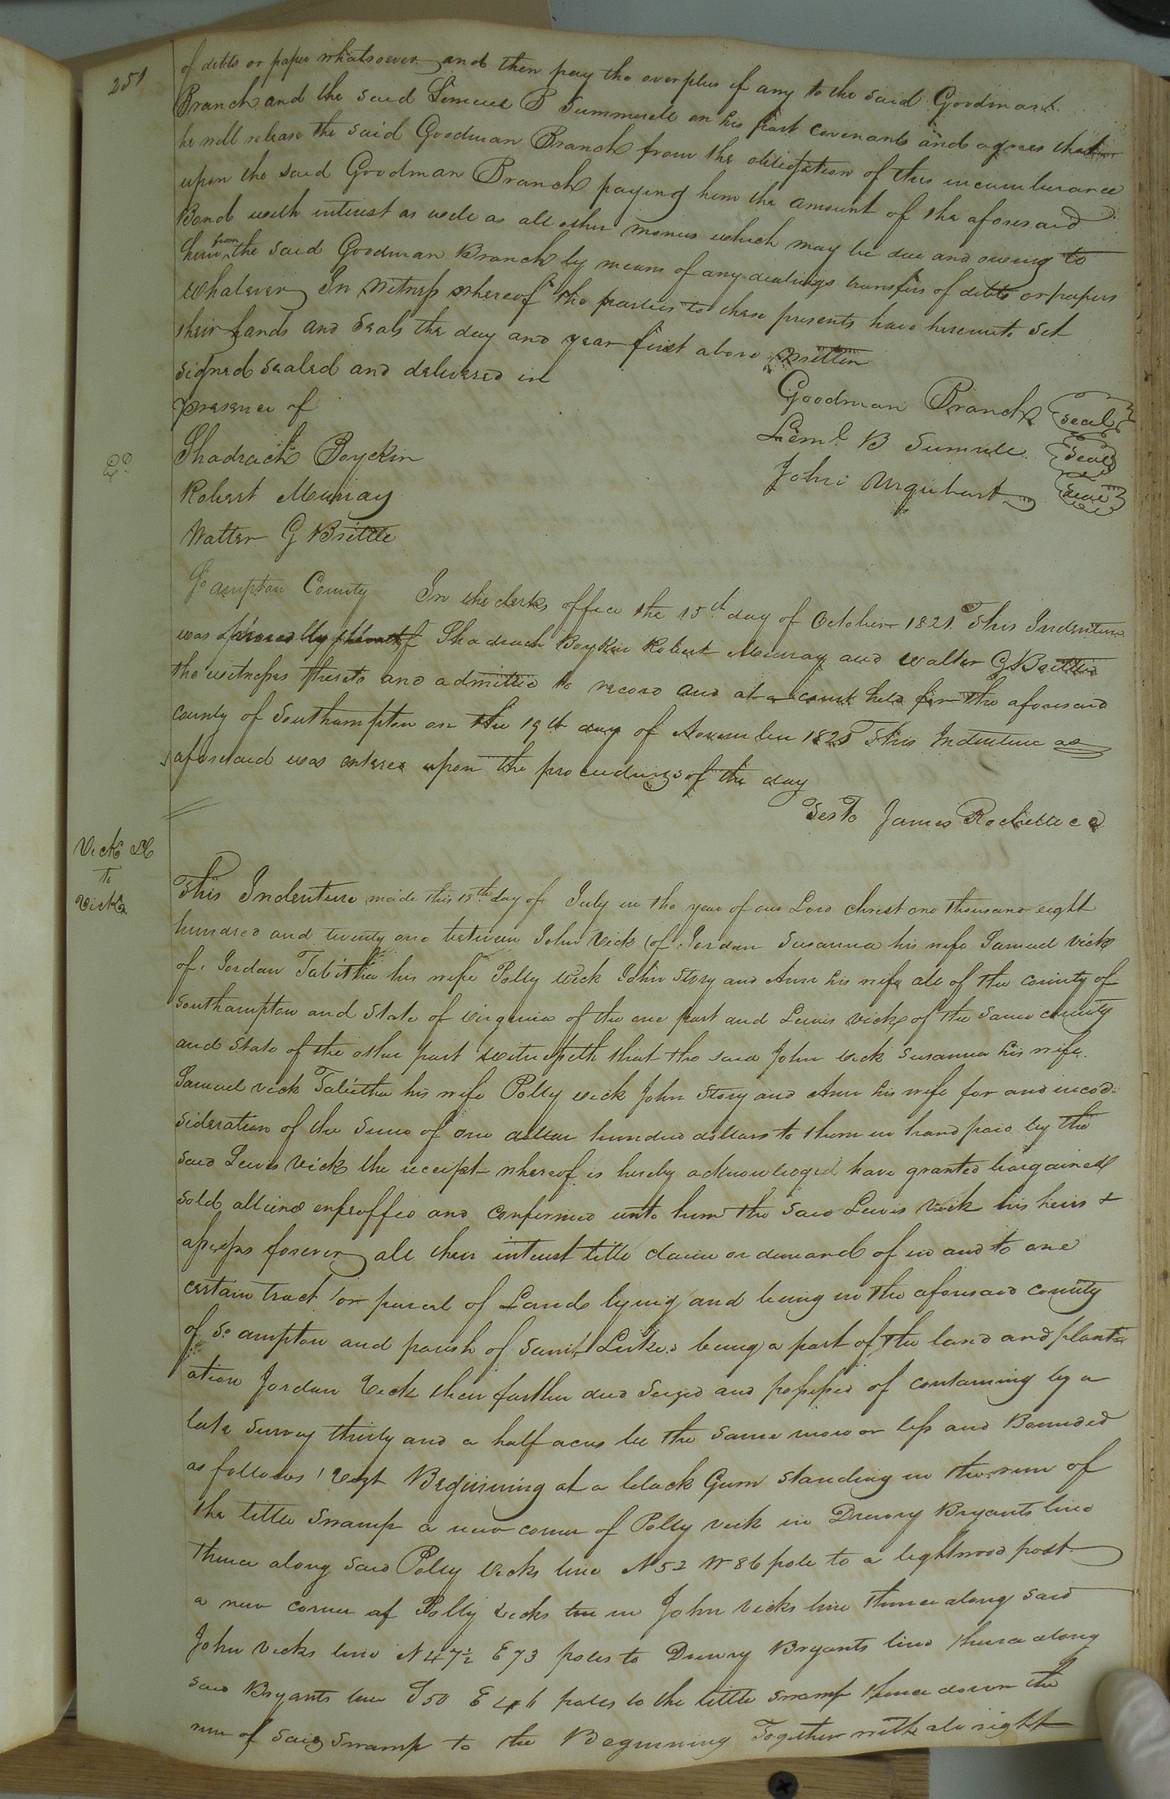 251
of debts or paper whatsoever and then pay the overplus if any to the said Goodman
Branch and the said Lemuel B Summrell on his part covenants and agrees that
he will release the said Goodman Branch from the obligation of this incumberance
upon the said Goodman Branch paying him the amount of the aforesaid
Bond with interest as well as all other monies which may be due and oweing to
him from the said Goodman Branch by means of any dealings transfers of debts or papers
whatever In Witness whereof the parties to these presents have hereunto set
their hands and seals the day and year first above written
signed sealed and delivered in
presence of
Goodman Branch seal
Leml. B Sumrele seal
John Urquhart seal
Shadrach Boykin
Robert Murray
Walter G Brittle
So ampton County In the clerks office the 15th day of October 1821 This Indenture
was Shadrach Boykin Robert Murray and Walter G Brittle
the witnesses thereto and admitted to record and at a court held for the aforesaid
county of Southampton on the 19th day of November 1821 This Indenture as
aforesaid was entered upon the proceedings of the day
Teste James Rochelle cc
Vick &c
To
Vick
This Indenture made this 18th day of July in the year of our Lord christ one thousand eight
hundred and twenty one between John Vick (of Jordan Susanna his wife Samuel Vick
of Jordan Tabitha his wife Polly Vick John Story and Ann his wife all of the county of
Southampton and State of virginia of the one part and Lewis Vick of the same county
and State of the other part witnesseth that the said John Vick Susanna his wife
Samuel Vick Tabitha his wife Polly Vick John Story and Ann his wife for and incon
sideration of the sum of one dollar hundred dollars to them in hand paid by the
said Lewis Vick the receipt whereof is hereby acknowledged have granted bargained
sold aliend enfeoffed and confirmed unto him the said Lewis Vick his heirs &
assigns forever all their interest title claim or demand of in and to one
certain tract or parcel of Land lying and being in the aforesaid county
of So ampton and parish of Saint Lukes being a part of the land and plant
ation Jordan Vick their farther died Seized and possessed of containing by a
late survey thirty and a half acres be the same more or less and Bounded
as follows Vizt Beginning at a black Gum standing in the run of
the little Swamp a new corner of Polly Vick in Drewry Bryants line
thence along said Polly Vicks line N 52 W 86 pole to a lightwood post
a new corner of Polly Vicks in John Vicks line thence along said
John Vicks line N 47½ E 73 poles to Drewry Bryants line thence along
said Bryants line S 50 E 46 poles to the little swamp thence down the
run of said Swamp to the Beginning Together with all right